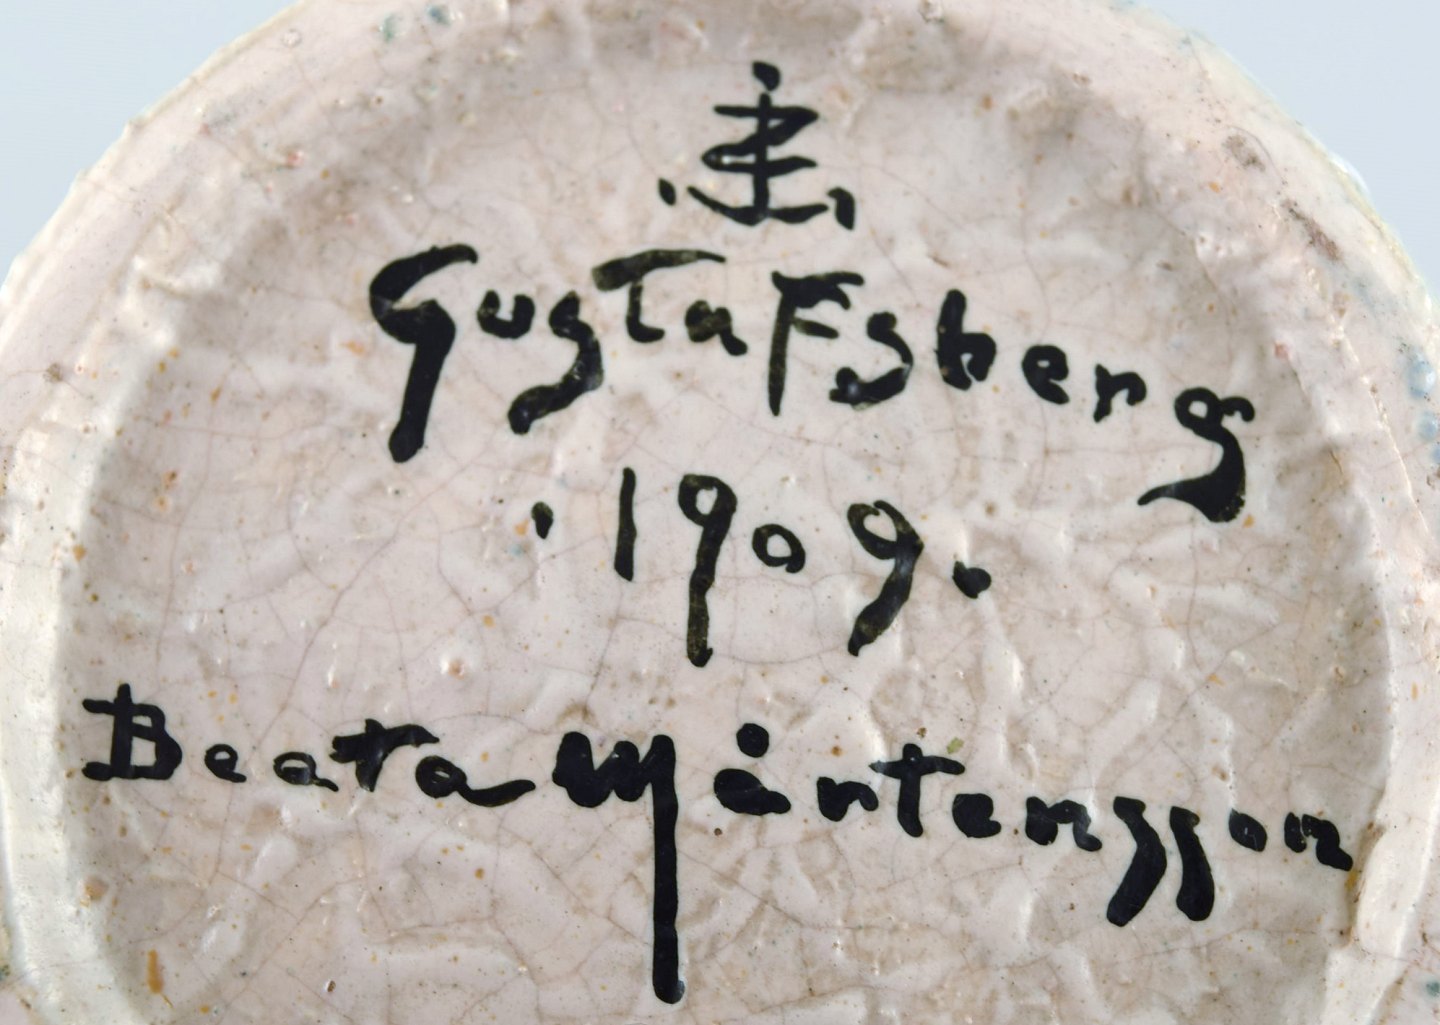 Gustafsberg
.1909.
Beata Mårtensson